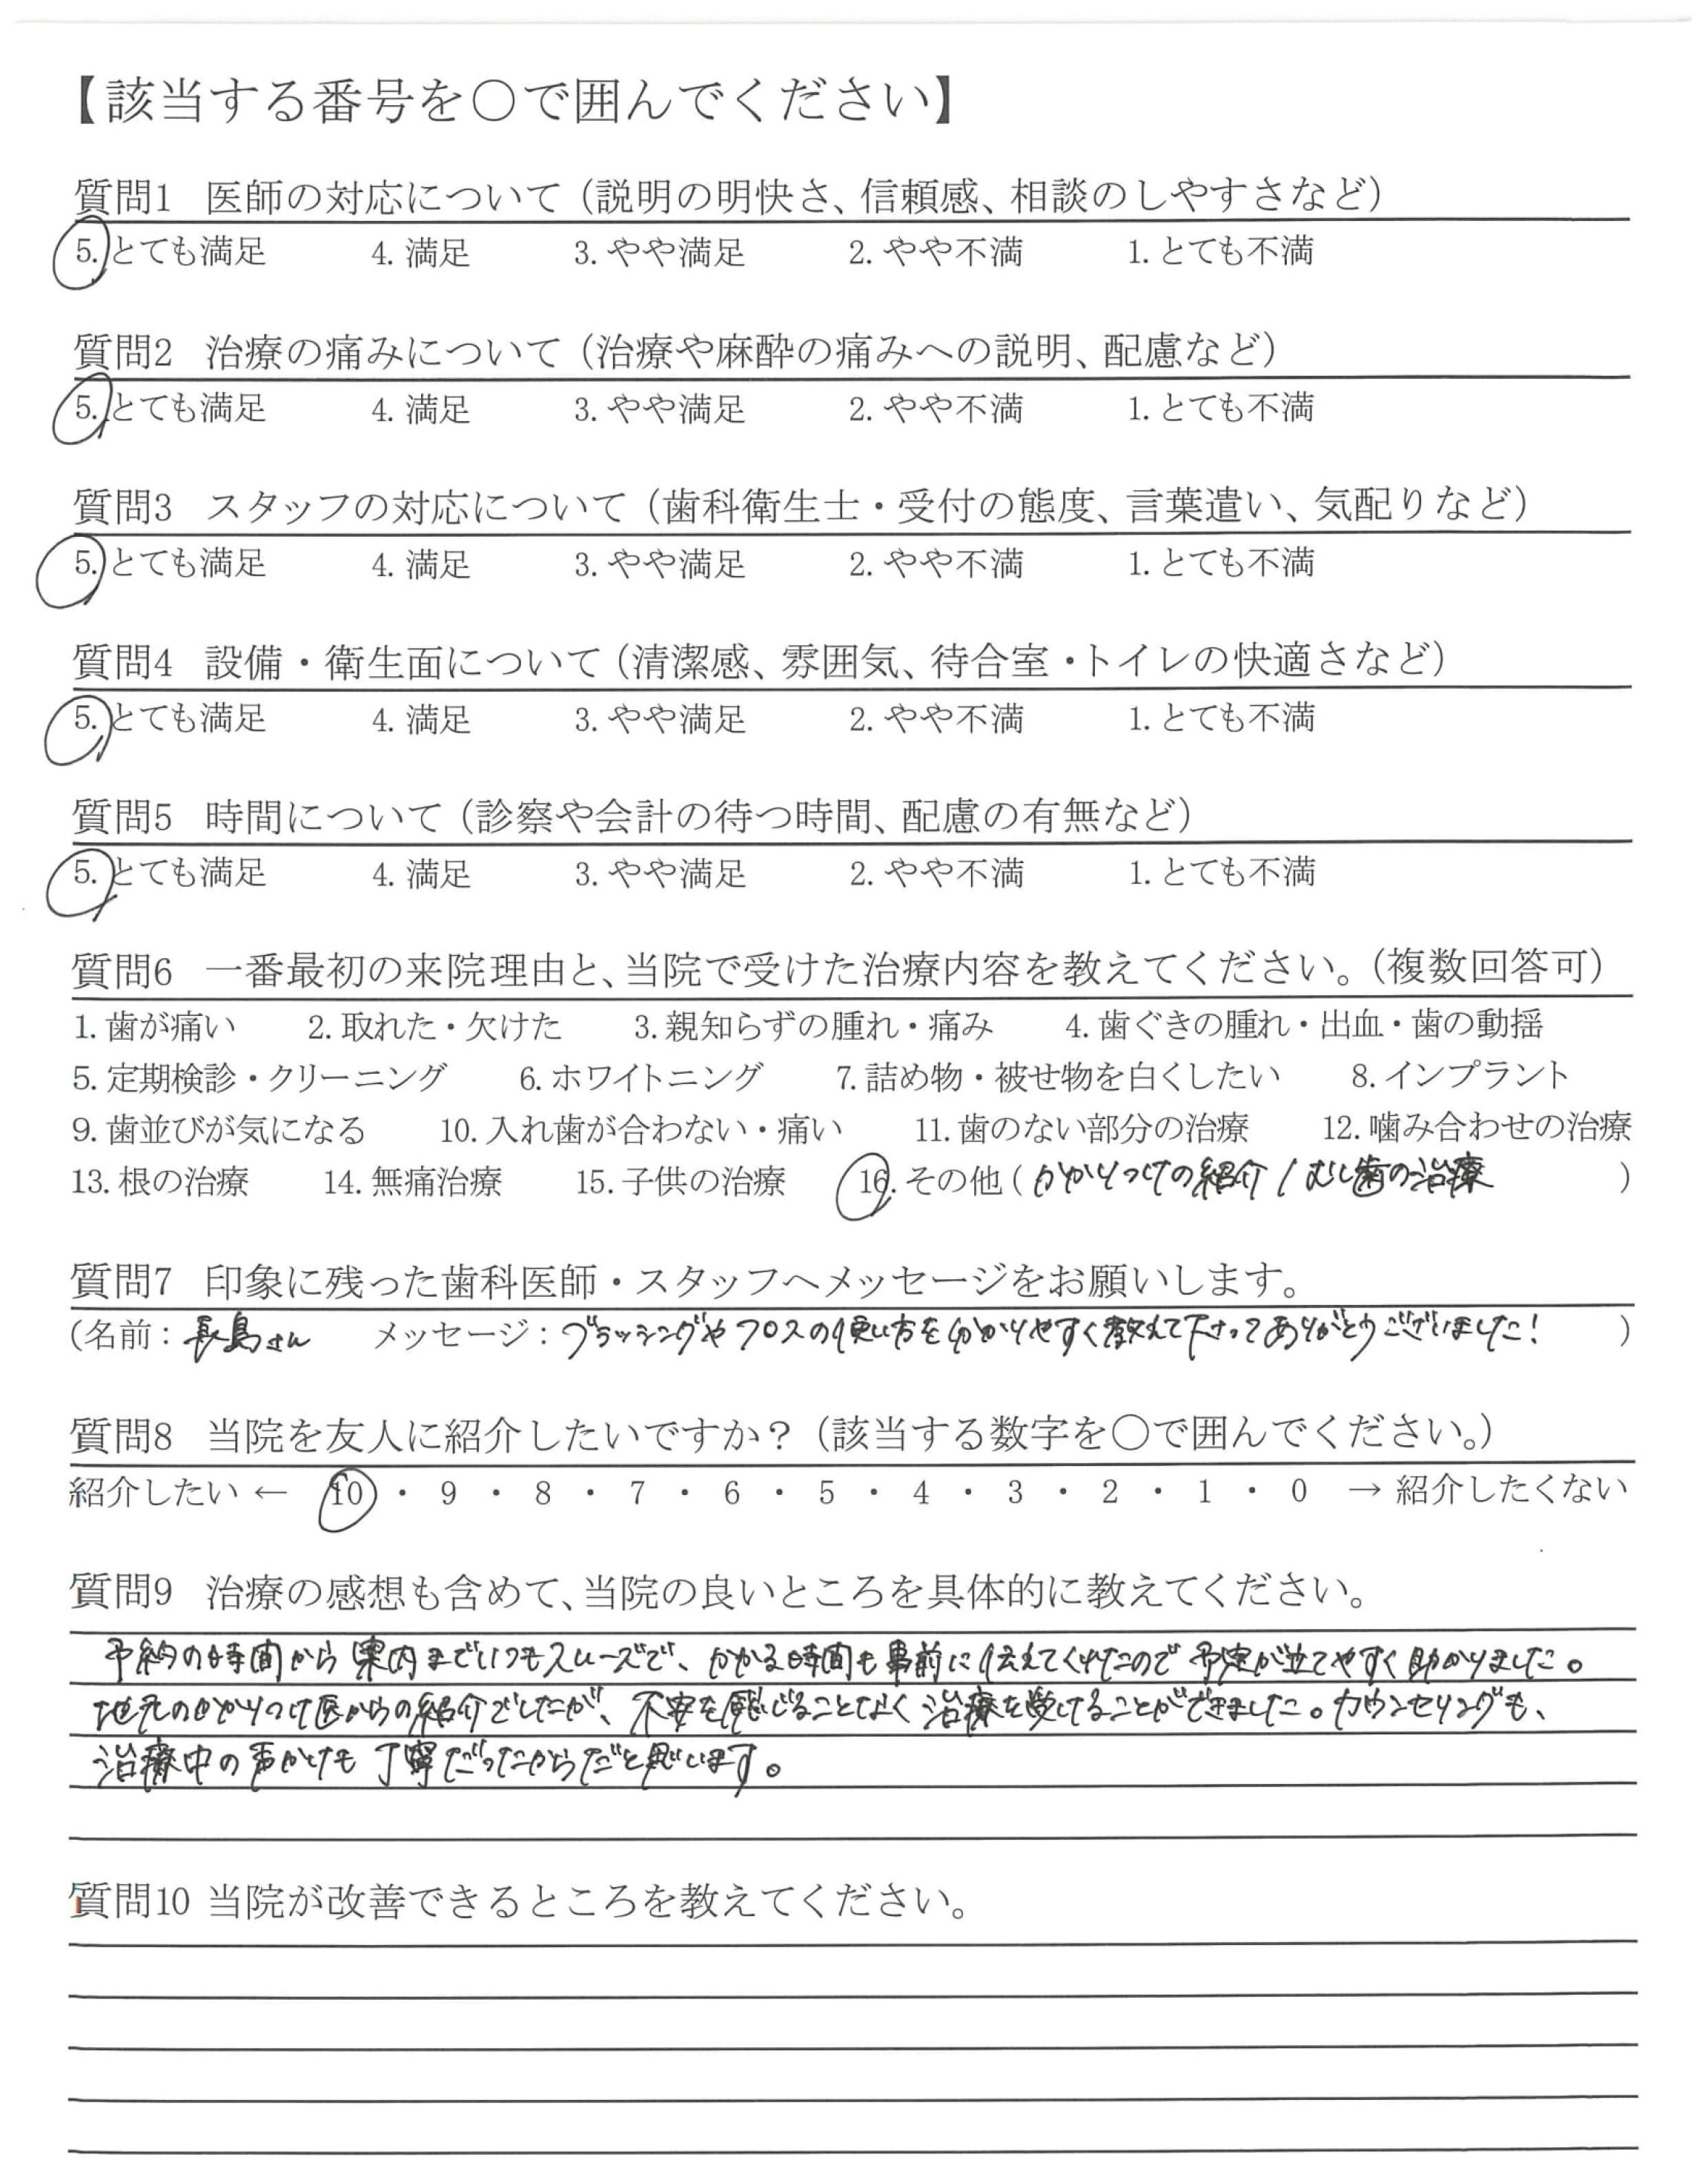 【該当する番号を○で囲んでください】
質問1 医師の対応について（説明の明快さ、信頼感、相談のしやすさなど）
5. とても満足 4. 満足 3. やや満足 2. やや不満 1. とても不満
質問2 治療の痛みについて（治療や麻酔の痛みへの説明、配慮など）
5. とても満足 4. 満足 3. やや満足 2. やや不満 1. とても不満
質問3 スタッフの対応について（歯科衛生士・受付の態度、言葉遣い、気配りなど）
5. とても満足 4. 満足 3. やや満足 2. やや不満 1. とても不満
質問4 設備・衛生面について（清潔感、雰囲気、待合室・トイレの快適さなど）
5. とても満足 4. 満足 3. やや満足 2. やや不満 1. とても不満
質問5 時間について（診察や会計の待つ時間、配慮の有無など）
5. とても満足 4. 満足 3. やや満足 2. やや不満 1. とても不満
質問6 一番最初の来院理由と、当院で受けた治療内容を教えてください。（複数回答可）
1. 歯が痛い 2. 取れた・欠けた 3. 親知らずの腫れ・痛み 4. 歯ぐきの腫れ・出血・歯の動揺
5. 定期検診・クリーニング 6. ホワイトニング 7. 詰め物・被せ物を白くしたい 8. インプラント
9. 歯並びが気になる 10. 入れ歯が合わない・痛い 11. 歯のない部分の治療 12. 噛み合わせの治療
13. 根の治療 14. 無痛治療 15. 子供の治療 16. その他（かかりつけの紹介 / むし歯の治療）
質問7 印象に残った歯科医師・スタッフへメッセージをお願いします。
（名前：長島さん メッセージ：ブラッシングやフロスの使い方を分かりやすく教えて下さってありがとうございました！）
質問8 当院を友人に紹介したいですか？（該当する数字を○で囲んでください。）
紹介したい ← 10 ・ 9 ・ 8 ・ 7 ・ 6 ・ 5 ・ 4 ・ 3 ・ 2 ・ 1 ・ 0 → 紹介したくない
質問9 治療の感想も含めて、当院の良いところを具体的に教えてください。
予約の時間から案内までいつもスムーズで、かかる時間も事前に伝えてくれたので予定が立てやすく助かりました。
地元のかかりつけ医からの紹介でしたが、不安を感じることなく治療を受けることができました。カウンセリングも、
治療中の声かけも丁寧だったからだと思います。
質問10 当院が改善できるところを教えてください。